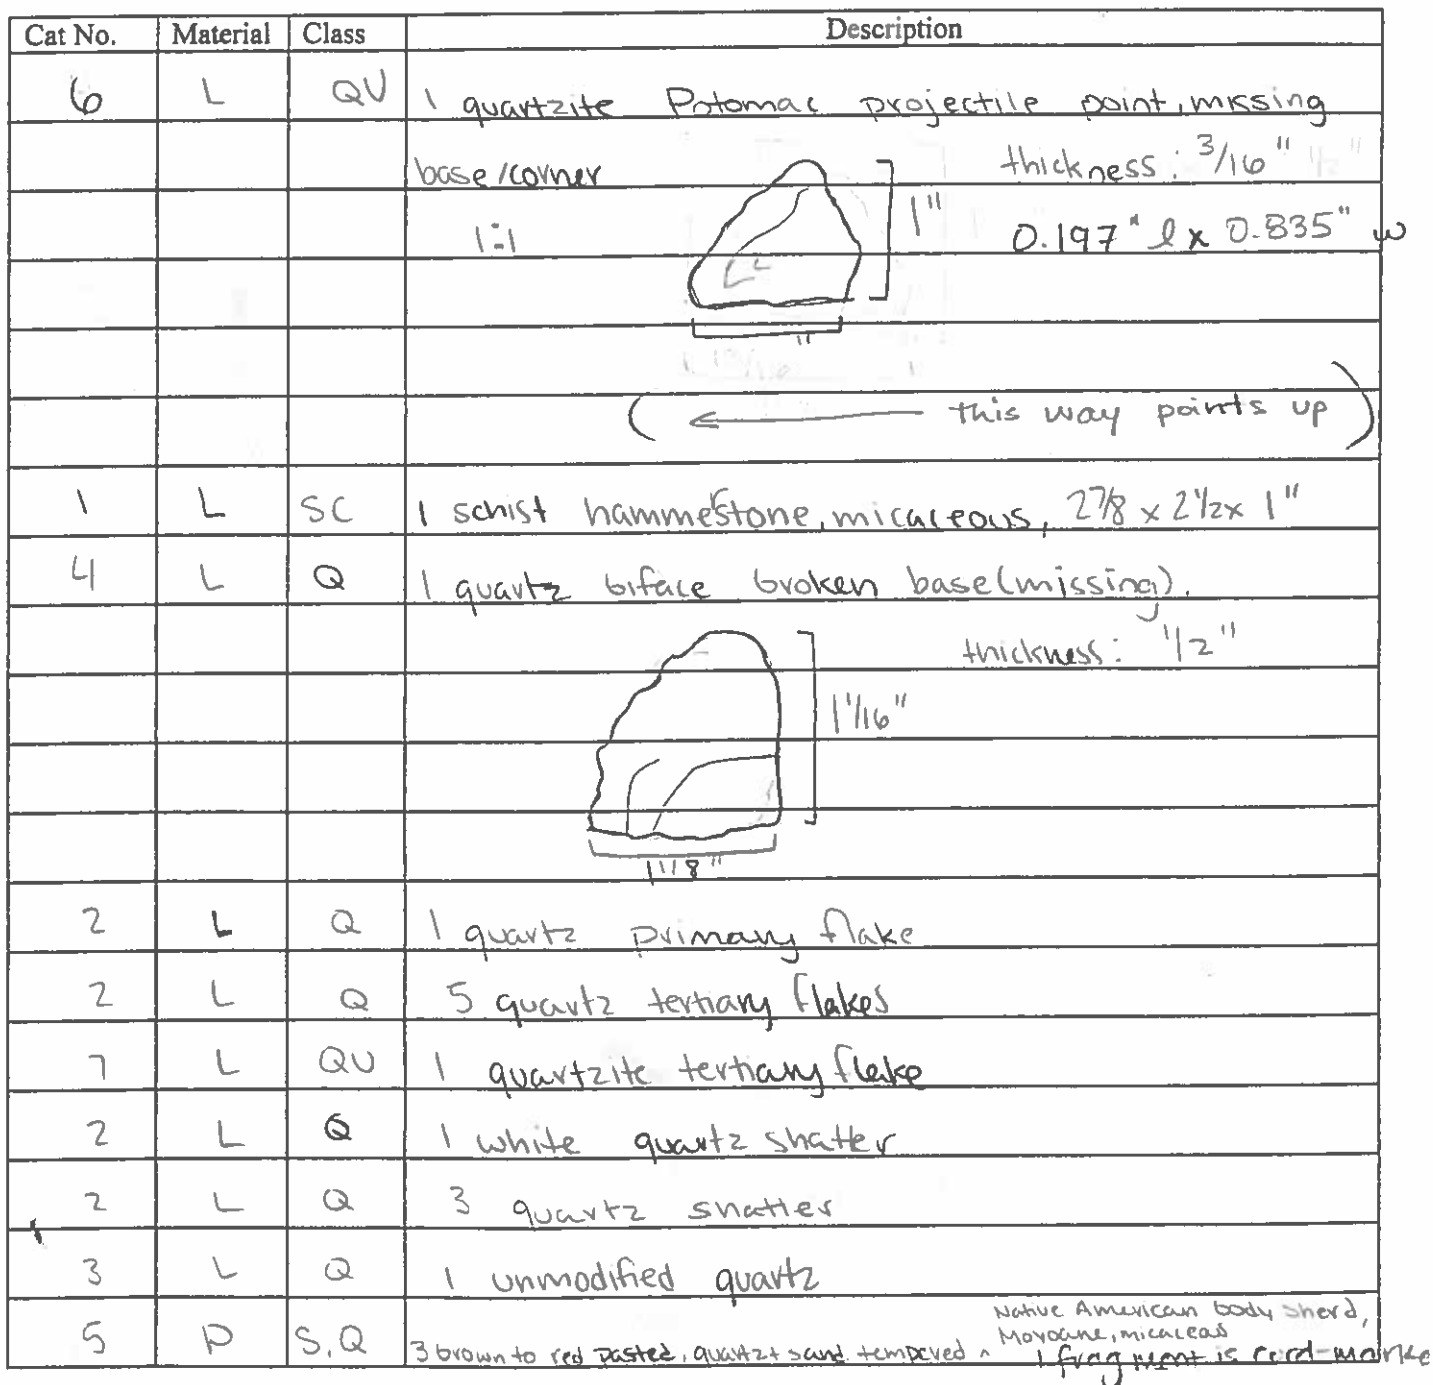 Cat No. Material Class Description
6 L QU 1 quartzite Potomac projectile point, missing
base/corner thickness: 3/16"
1:1 1" 0.197" l x 0.835" w
"
( ← this way points up )
1 L SC 1 schist hammerstone, micaceous, 2 7/8 x 2 1/2 x 1"
4 L Q 1 quartz biface broken base (missing).
thickness: 1/2"
1 1/16"
1 1/8"
2 L Q 1 quartz primary flake
2 L Q 5 quartz tertiary flakes
7 L QU 1 quartzite tertiary flake
2 L Q 1 white quartz shatter
2 L Q 3 quartz shatter
3 L Q 1 unmodified quartz
Native American body sherd,
Moyoane, micaceas
5 P S,Q 3 brown to red pasted, quartz + sand tempered ^ 1 fragment is cord-marke